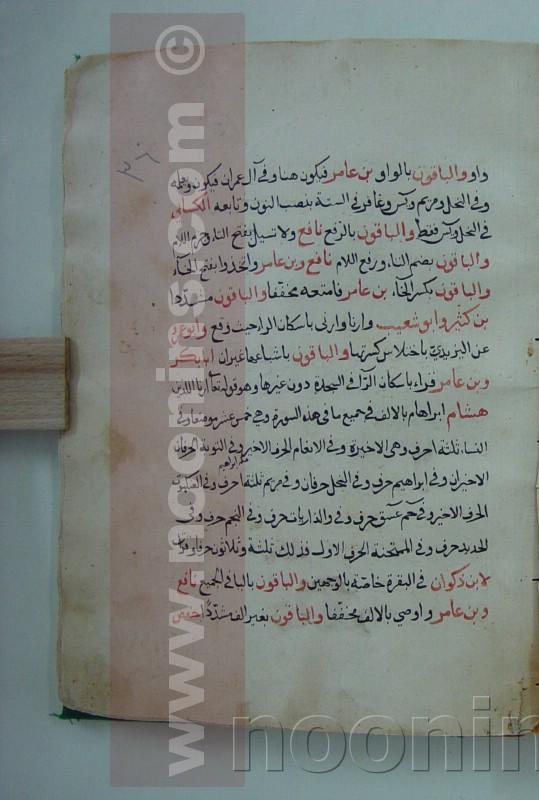 ٣٦
واو والباقون بالواو بن عامر فيكون هنا وفي آل عمران فيكون ونعلمه
وفي النحل ومريم ويس وغافر في الستة بنصب النون وتابعه الكسائي
في النحل ويس فقط والباقون بالرفع نافع ولا تسيل بفتح التاء وجزم اللام
والباقون بضم التاء ورفع اللام نافع وبن عامر واتخذوا بفتح الخاء
والباقون بكسر الخاء بن عامر فامتعه مخففا والباقون مشددا
بن كثير وابو شعيب وارنا وارني باسكان الراء حيث وقع وابو عمرو
عن اليزيدي باختلاس كسرتها والباقون باشباعها غير ان ابابكر
وبن عامر قراء باسكان الرا في السجدة دون غيرها وهو قوله تعا ارنا اللذين
هشام ابراهام بالالف في جميع ما في هذه السورة وهي خمس عشر موضعا وفي
النساء ثلثة احرف وهي الاخيرة وفي الانعام الحرف الاخير وفي التوبة الحرفان
الاخيران وفي ابراهيم حرف وفي النحل حرفان وفي مريم ثلثة احرف وفي العنكبوت
الحرف الاخير وفي حم عسق حرف وفي والذاريات حرف وفي النجم حرف وفي
الحديد حرف وفي الممتحنة الحرف الاول فذلك ثلثة وثلاثون حرفا
لابن ذكوان في البقرة خاصة بالوجهين والباقون باليا في الجميع نافع
وبن عامر واوصي بالالف مخففا والباقون بغير الف مشددا حفص
www.noorinjas.com ©
www.noorin